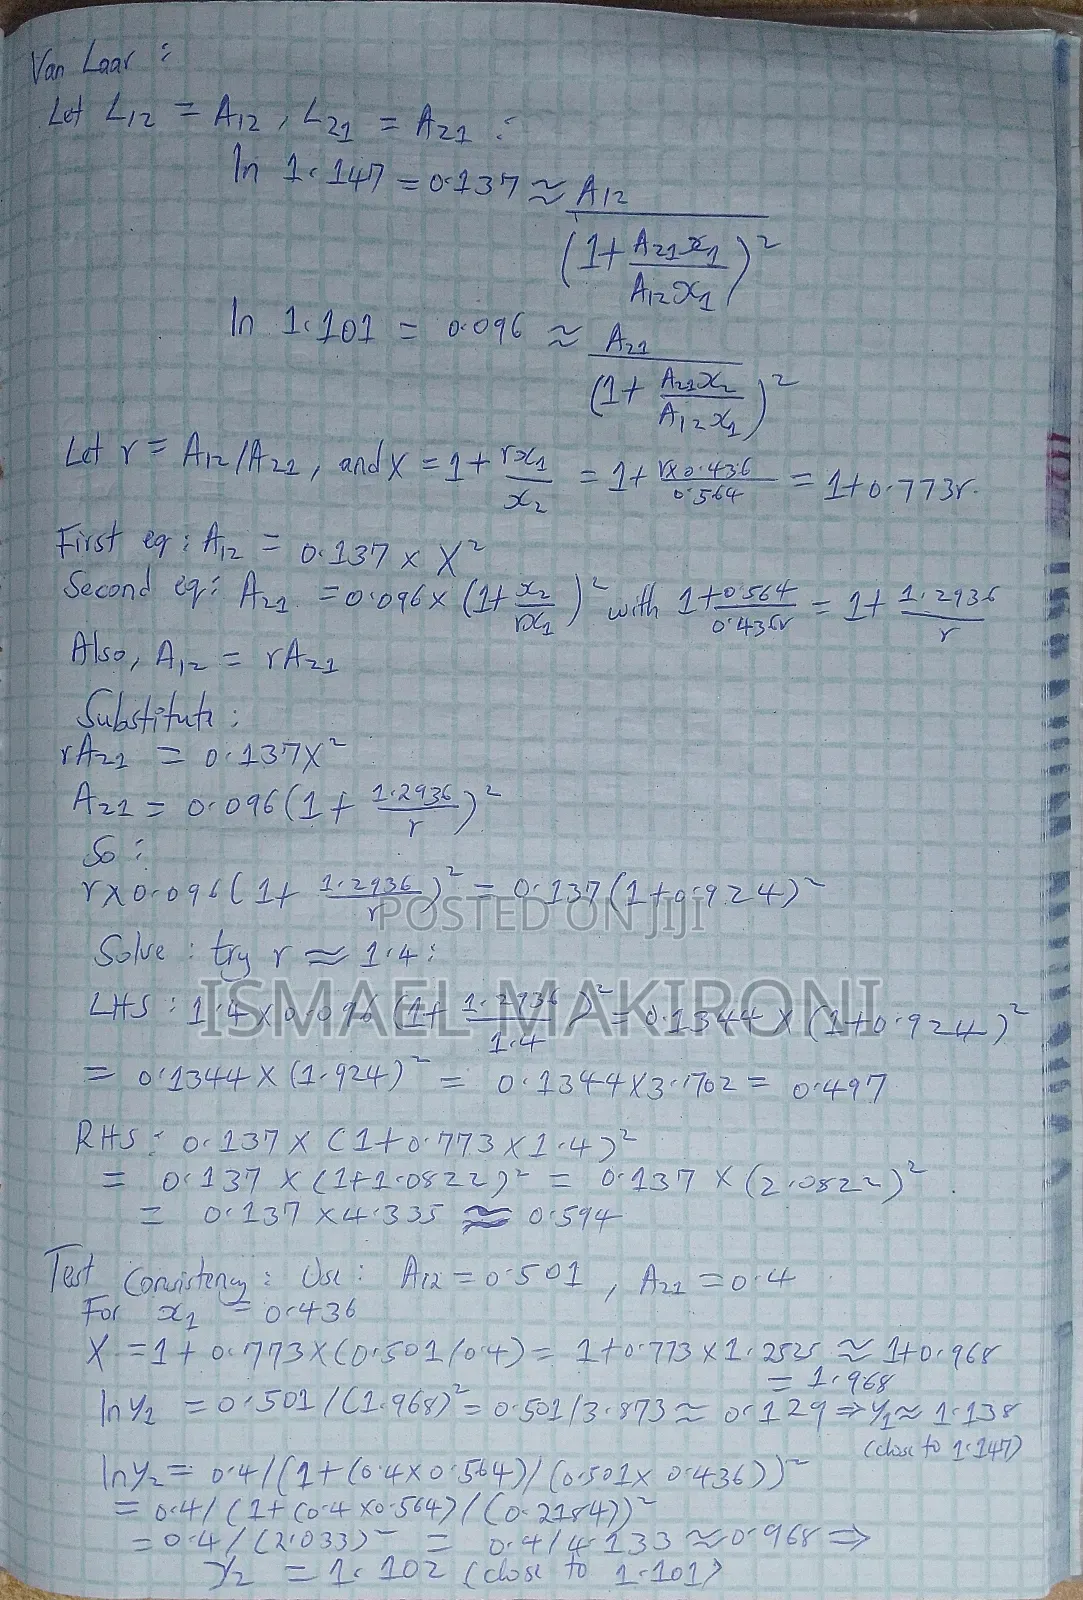 Van Laar :
Let L12 = A12 , L21 = A21 :
ln 1.147 = 0.137 ≈ A12 / (1 + A21x1 / A12x1)²
ln 1.101 = 0.096 ≈ A21 / (1 + A21x2 / A12x1)²
Let r = A12/A21, and X = 1 + rx1 / x2 = 1 + r×0.436 / 0.564 = 1+0.773r.
First eq : A12 = 0.137 × X²
Second eq : A21 = 0.096 × (1 + x2 / rx1)² with 1+0.564 / 0.436r = 1 + 1.2936 / r
Also, A12 = rA21
Substitute :
rA21 = 0.137X²
A21 = 0.096(1 + 1.2936 / r)²
So :
r×0.096(1 + 1.2936 / r)² = 0.137(1+0.924)²
POSTED ON JIJI
Solve : try r ≈ 1.4 :
ISMAEL MAKIRONI
LHS : 1.4×0.096 (1+ 1.2936 / 1.4)² = 0.1344 × (1+0.924)²
= 0.1344 × (1.924)² = 0.1344×3.702 = 0.497
RHS : 0.137 × (1+0.773×1.4)²
= 0.137 × (1+1.0822)² = 0.137 × (2.0822)².
= 0.137 ×4.335 ≈ 0.594
Test Consistency : Use : A12 = 0.501 , A21 = 0.4
For x1 = 0.436
X = 1+0.773×(0.501/0.4) = 1+0.773×1.2525 ≈ 1+0.968
= 1.968
ln γ2 = 0.501/(1.968)² = 0.501/3.873 ≈ 0.129 ⇒ γ1 ≈ 1.138
(close to 1.147)
ln γ2 = 0.4/(1+(0.4×0.564)/(0.501× 0.436))²
= 0.4/(1+(0.4×0.564)/(0.2184))²
= 0.4/(2.033)² = 0.4/4.133 ≈ 0.968 ⇒
γ2 = 1.102 (close to 1.101)